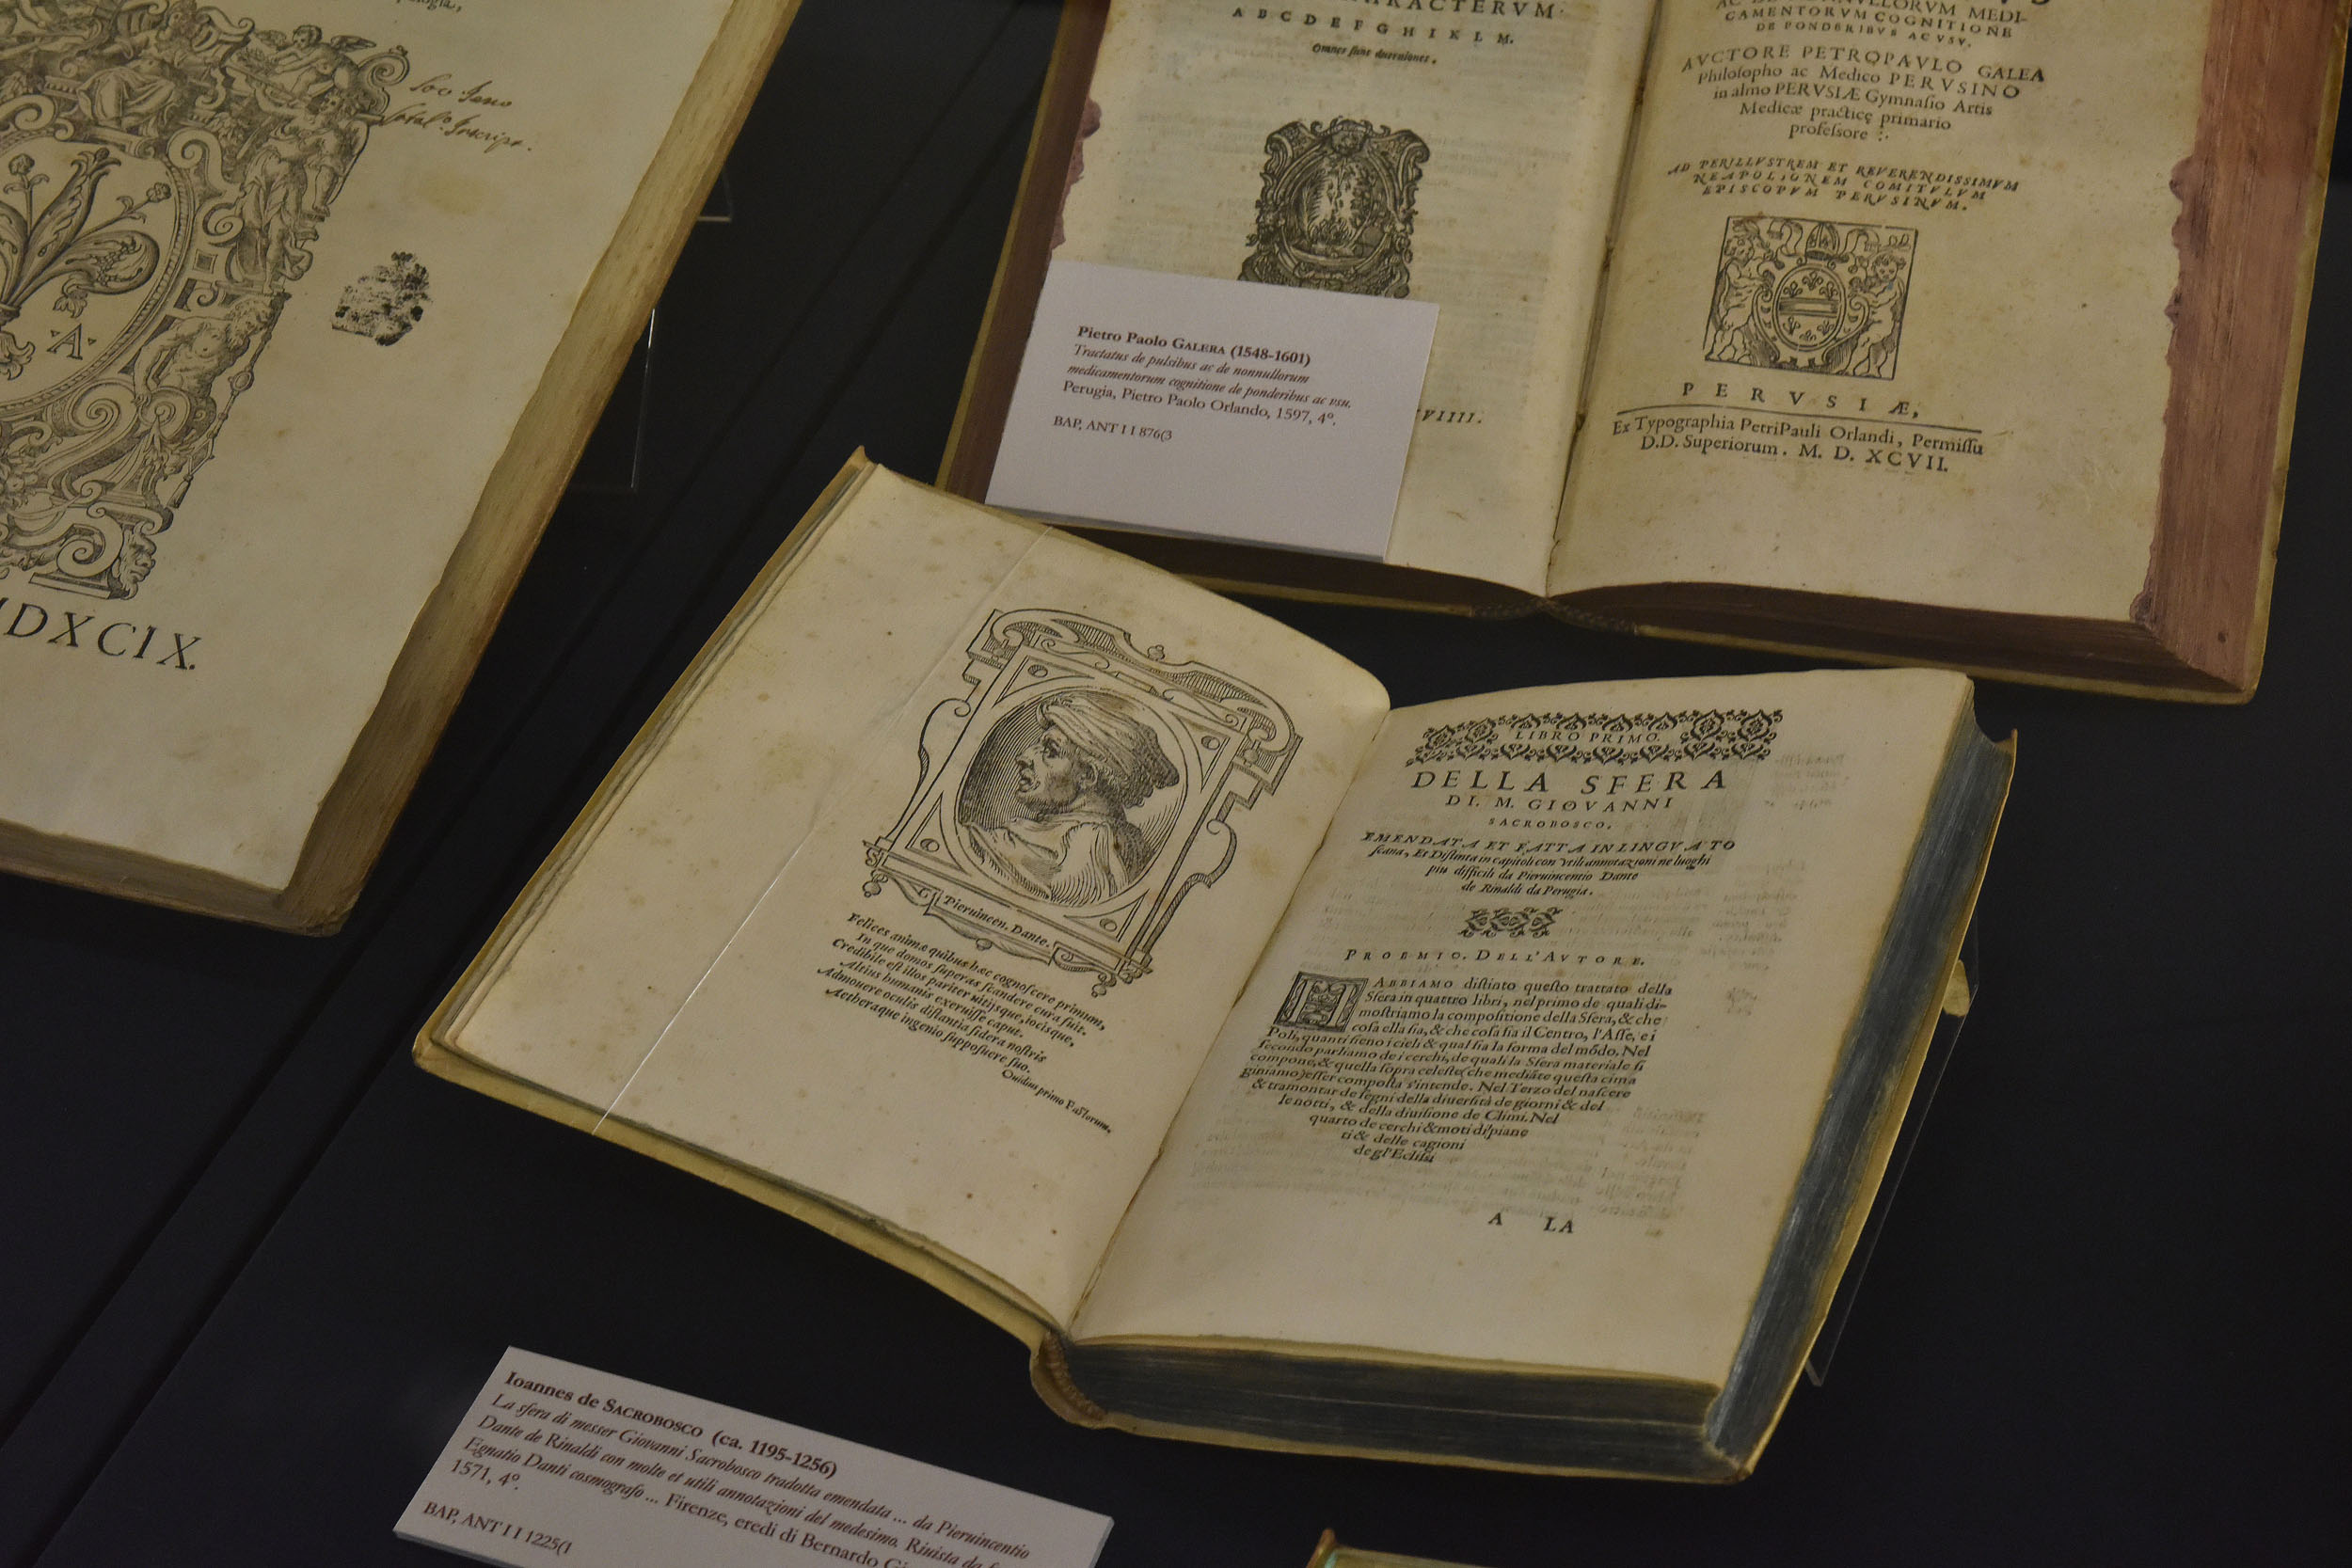 MDXCIX.
CHARACTERVM.
A B C D E F G H I K L M.
Omnes sunt duerniones.
VIIII.
AC DE NONNVLLORVM MEDI-
CAMENTORVM COGNITIONE
DE PONDERIBVS AC VSV.
AVCTORE PETROPAVLO GALEA
Philosopho ac Medico PERVSINO
in almo PERVSIÆ Gymnasio Artis
Medicæ practicę primario
professore
AD PERILLVSTREM ET REVERENDISSIMVM
NEAPOLIONEM COMITVLVM
EPISCOPVM PERVSINVM.
PERVSIÆ,
Ex Typographia PetriPauli Orlandi, Permissu
D.D. Superiorum. M. D. XCVII.
Pietro Paolo GALERA (1548-1601)
Tractatus de pulsibus ac de nonnullorum
medicamentorum cognitione de ponderibus ac vsu.
Perugia, Pietro Paolo Orlando, 1597, 4º.
BAP, ANT I I 876(3
Pieruincen. Dante.
Felices animæ quibus hæc cognoscere primum,
In que domos superas scandere cura fuit.
Credibile est illos pariter uitijsque, iocisque,
Altius humanis exeruisse caput.
Admouere oculis distantia sidera nostris
Aetheraque ingenio supposuere suo.
Ouidius primo Fastorum.
LIBRO PRIMO.
DELLA SFERA
DI. M. GIOVANNI
SACROBOSCO.
EMENDATA ET FATTA IN LINGVA TO
scana, Et Distinta in capitoli con vtili annotazioni ne luoghi
piu difficili da Pieruincentio Dante
de Rinaldi da Perugia.
PROEMIO. DELL'AVTORE.
HABBIAMO distinto questo trattato della
Sfera in quattro libri, nel primo de quali di-
mostriamo la compositione della Sfera, & che
cosa ella sia, & che cosa sia il Centro, l'Asse, e i
Poli, quanti sieno i cieli & qual sia la forma del mōdo. Nel
secondo parliamo de i cerchi, de quali la Sfera materiale si
compone, & quella sopra celeste (che mediāte questa cima
giniamo) esser composta s'intende. Nel Terzo del nascere
& tramontar de segni della diuersità de giorni & del
le notti, & della diuisione de Climi. Nel
quarto de cerchi & moti di piane
ti & delle cagioni
de gl'Eclissi
A LA
Ioannes de SACROBOSCO (ca. 1195-1256)
La sfera di messer Giovanni Sacrobosco tradotta emendata ... da Pieruincentio
Dante de Rinaldi con molte et utili annotazioni del medesimo. Riuista da
Egnatio Danti cosmografo ... Firenze, eredi di Bernardo
1571, 4º.
BAP, ANT I I 1225(1